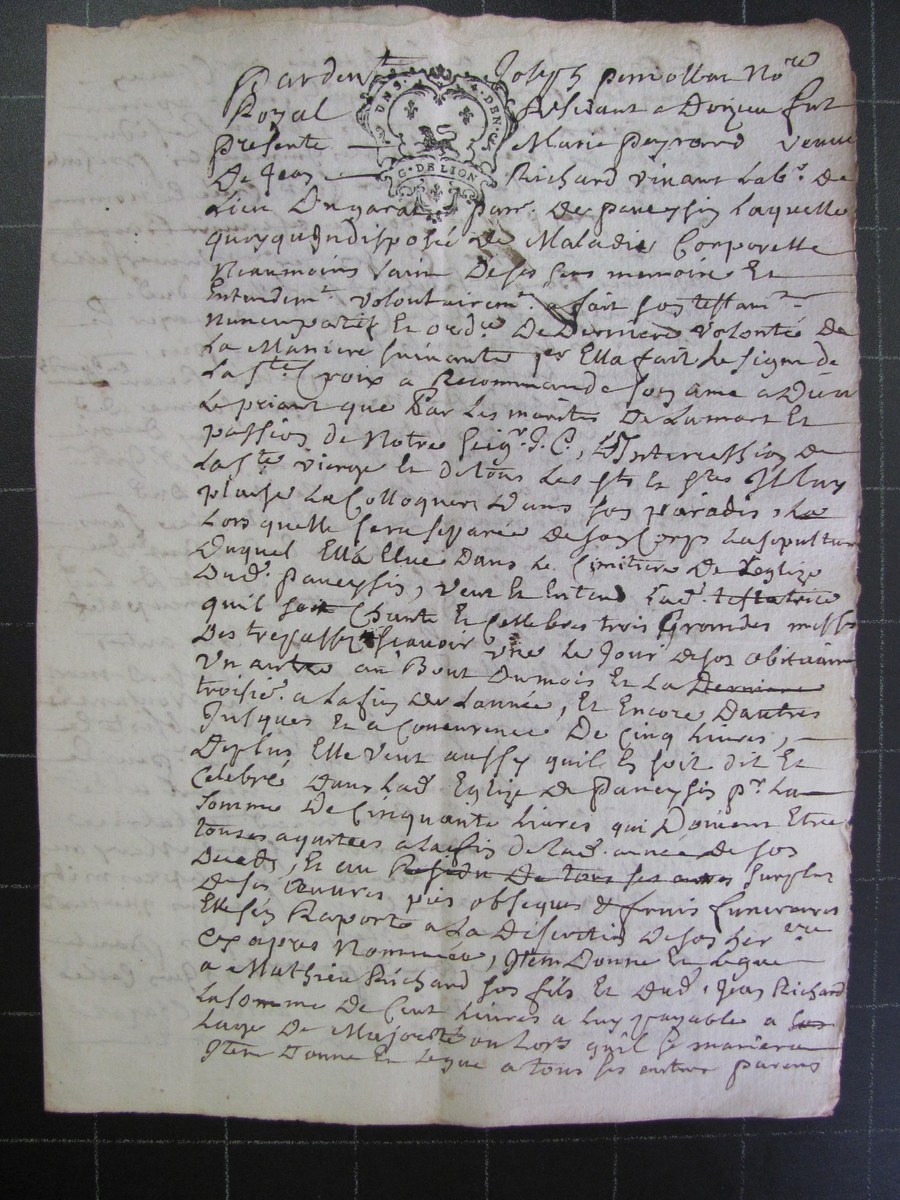 Pardent Joseph perrollat No.re
Royal Residant a Doizieu fut
presente Marie peyrard veuve
De Jean Richard vivant lab.r De
Lieu Dngaral parr. De paveyzin Laquelle
quoyque Indisposé de Maladie Corporelle
Neaumoins saine De ses sens memoire Et
Entendem.t volontairem.t a fait son testam.t
Nuncupatif Et ord.ce De Derniere volonté De
La Maniere suivante p.er Ella fait Le signe de
La s.te Croix a Recommandé son ame a Dieu
Le priant que par Les merites De La mort Et
passion de Notre seig.r J. C., L'Intercession De
La s.te vierge Et de tous Les s.ts Et s.tes Il luy
plaise La Colloquer Dans son paradis, La
Lors quelle sera sepparée De son Corps La sepulture
Duquel Ella Elue Dans Le Cimitiere De L'eglize
Dud. paveyzin, veut Et Entend Lad. testatrice
quil soit Chanté Et Cellebres trois Grandes messes
Des trepassés scavoir une Le Jour de son obit
un autre au Bout Du mois Et La Derniere
troisie. a La fin de L'année, Et Encore Dautres
Jusques Et a Concurrence De Cinq Livres,
De plus Elle veut aussy quil Es soit dit Et
Celebré Dans Lad. Eglize De paveyzin p.r La
somme De Cinquante Livres qui Doivent Etre
toutes aquitées a La fin de Lad. année de son
Decedz, Et au Residu De tous ses autres surplus
De ses œuvres pies obseques & frais funeraires
Elle s'en Raporte a La Discretion De son her.ere
Cy apres Nommée, Item Donne Et Legue
a Mathieu Richard son fils Et Dud. Jean Richard
La somme De Cent Livres a Luy payable a
Lage De Majorité ou Lors quil se mariera
Item Donne Et Legue a tous ses autres parens
G. DE LION